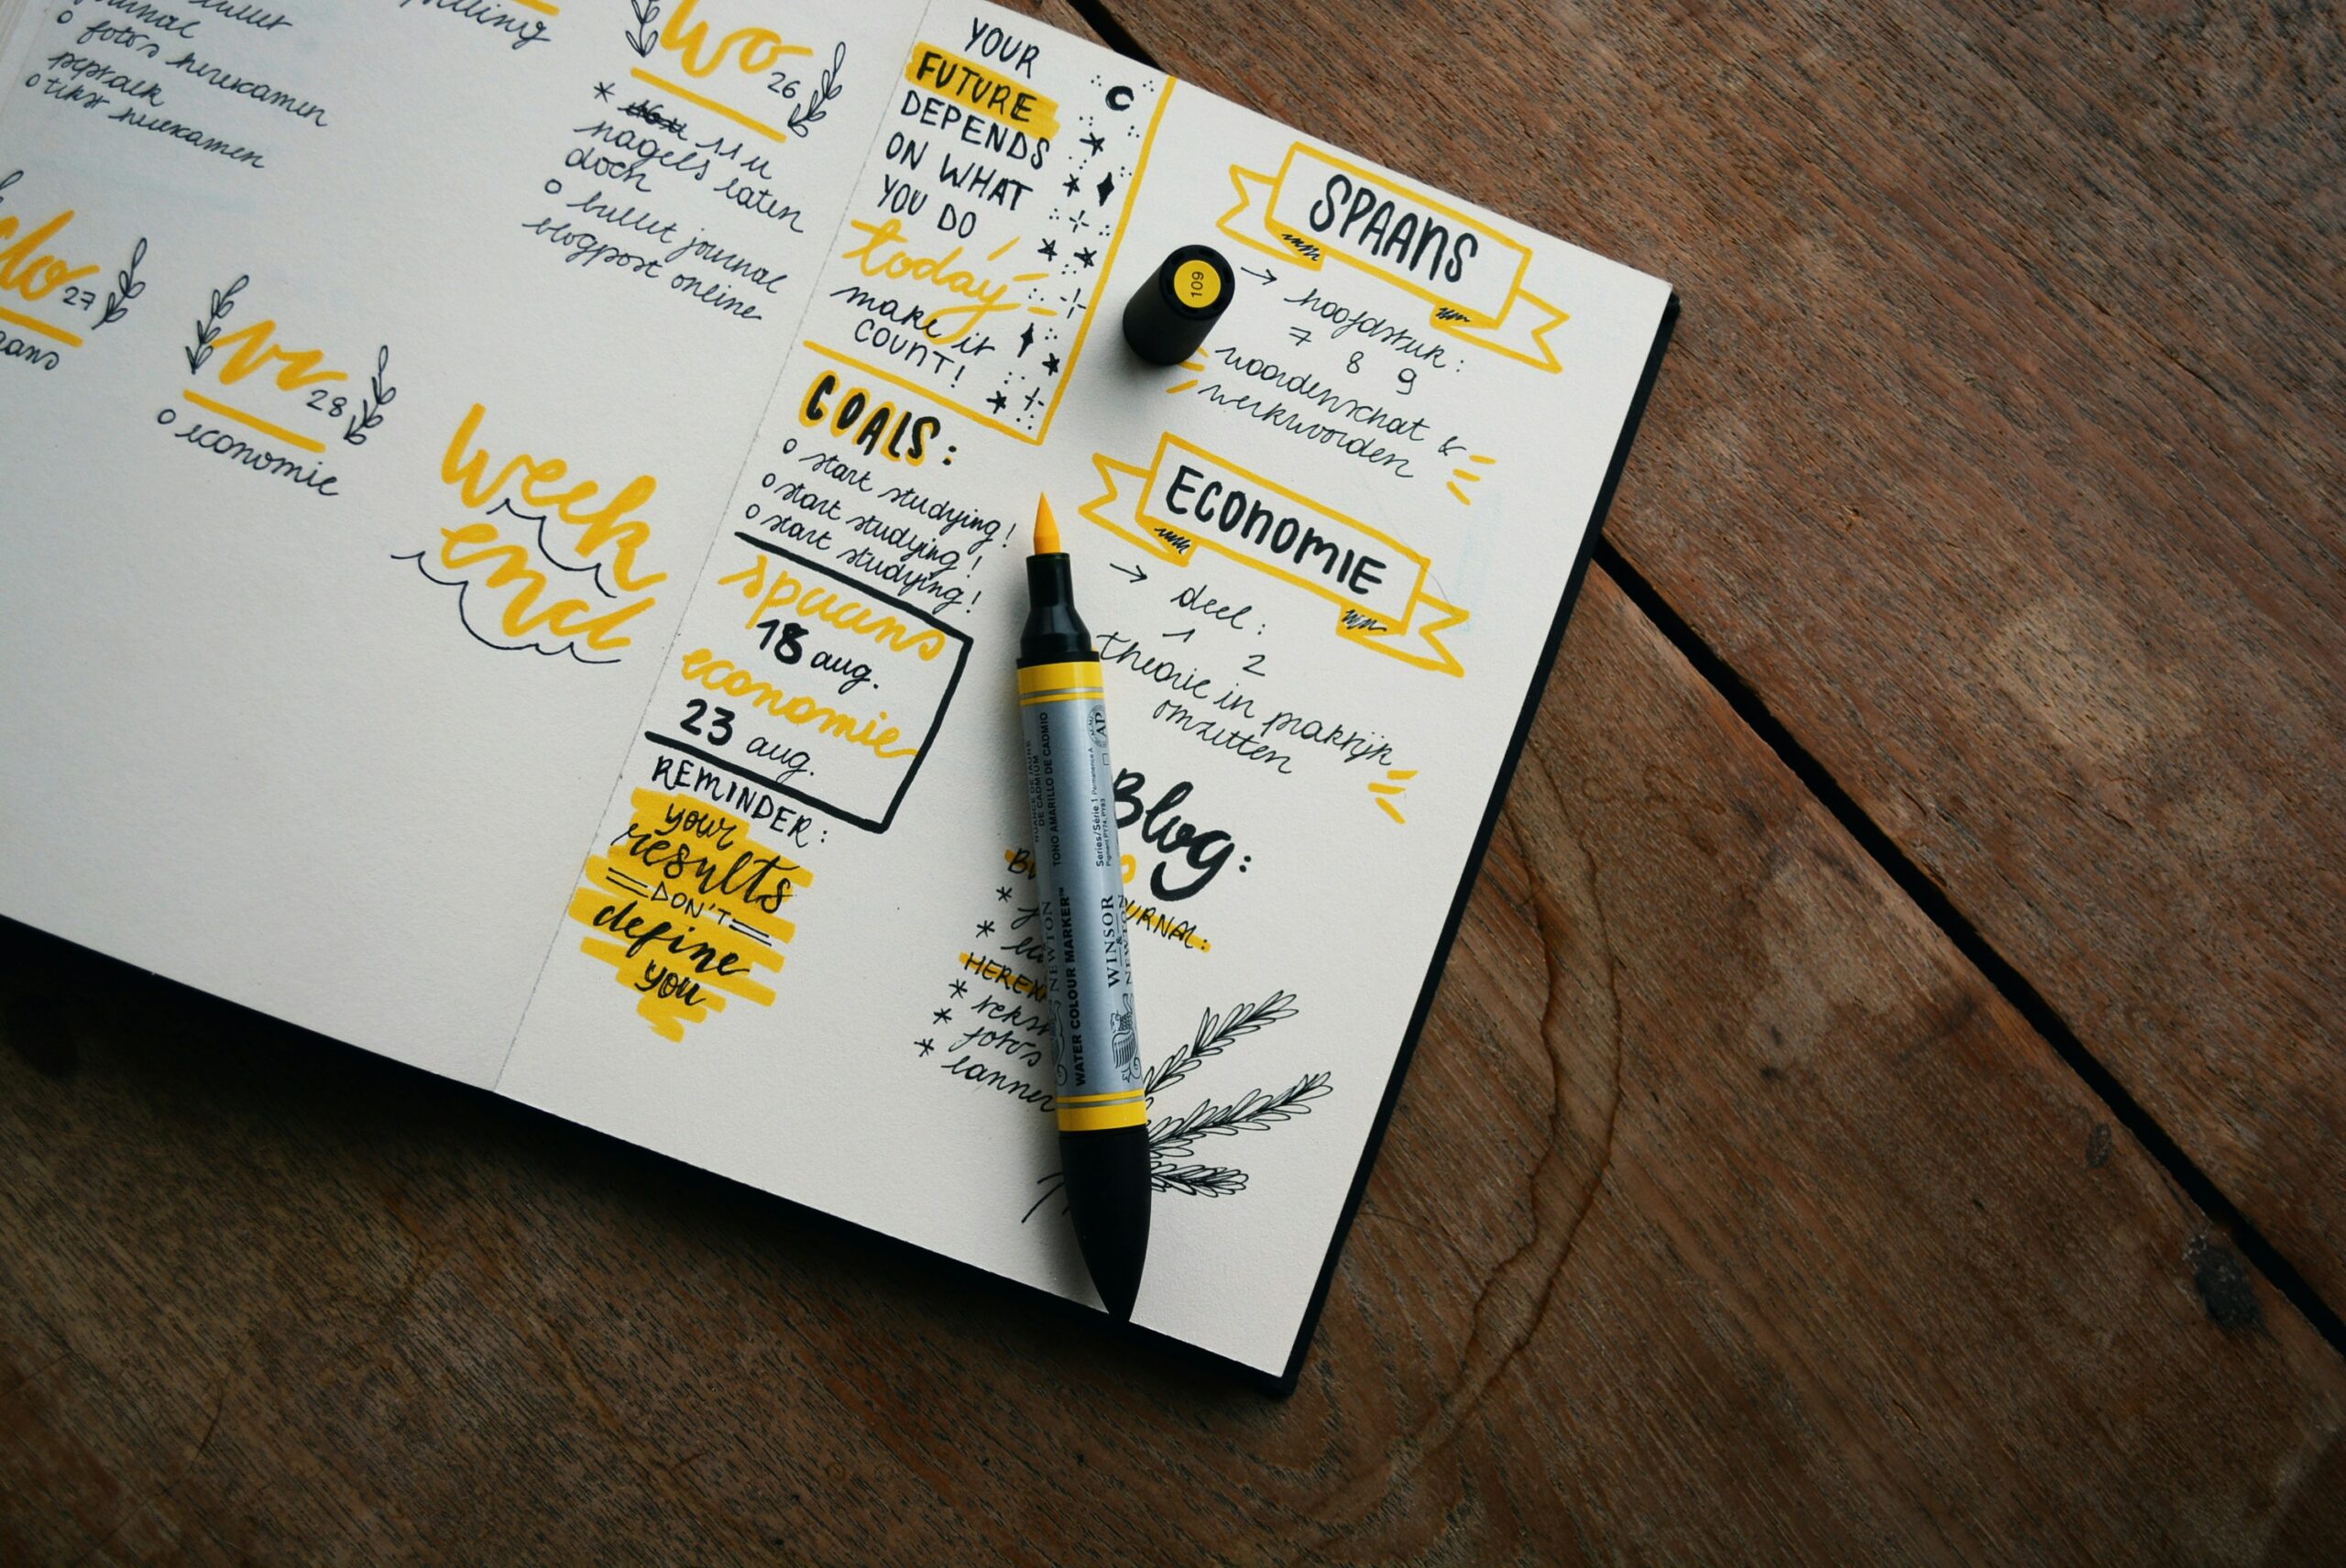 bullet
journal
o foto's herexamen
peptalk
o tekst herexamen
do 27
vr 28
o economie
week
end
wo 26
* 11 u
nagels laten
doen
o bullet journal
blogpost online
YOUR
FUTURE
DEPENDS
ON WHAT
YOU DO
today
make it
COUNT!
GOALS:
o start studying!
o start studying!
o start studying!
spaans
18 aug.
economie
23 aug.
REMINDER:
your
results
DON'T
define
you
SPAANS
→ hoofdstuk:
7 8 9
woordenschat &
werkwoorden
ECONOMIE
→ deel:
1 2
theorie in praktijk
omzetten
Blog:
*
*
* tekst
* foto's
*
109
WINSOR
& NEWTON
WATER COLOUR MARKER™
Series/Série 1
AP
TONO AMARILLO DE CADMIO
DE CADMIUM